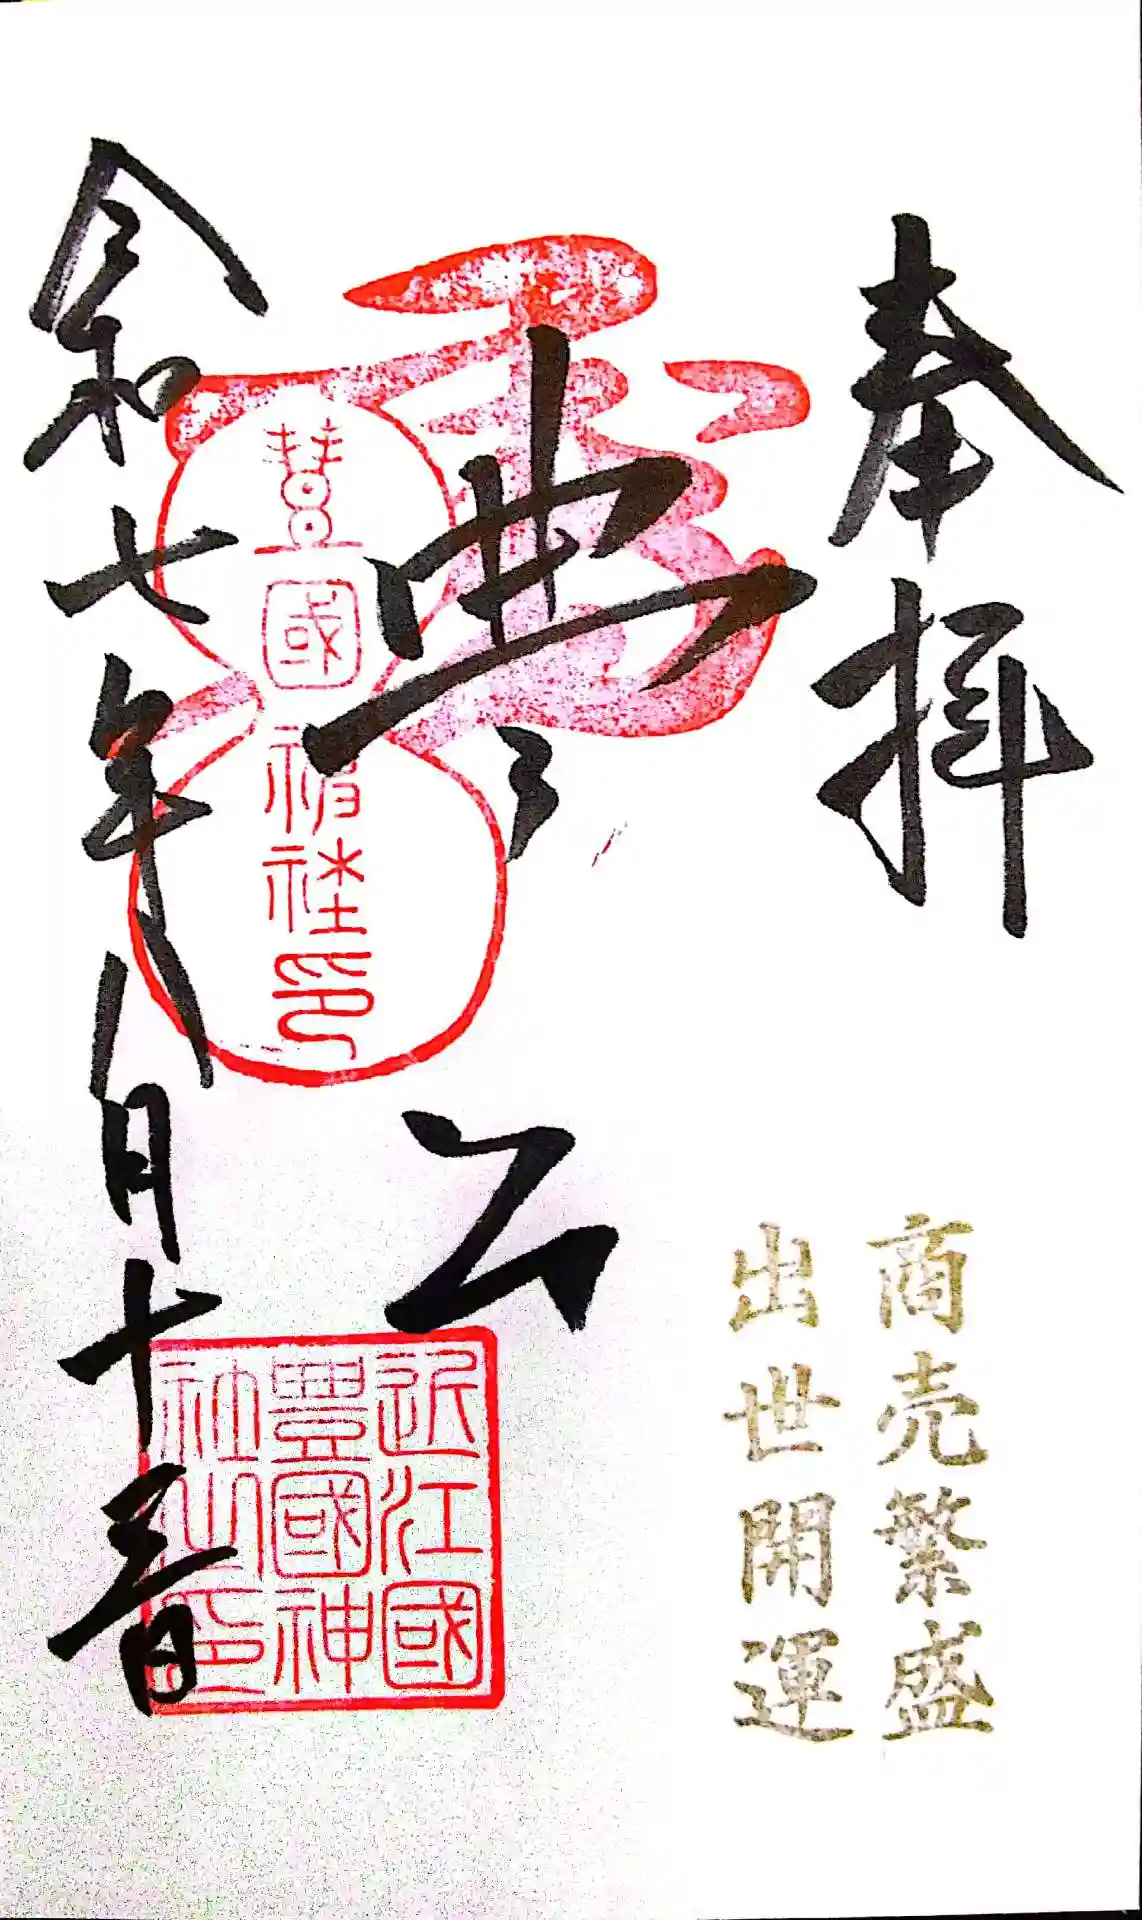 奉拝
商売繁盛
出世開運
豊公
豊國神社印
近江國
豊國神
社之印
令和七年八月十三日